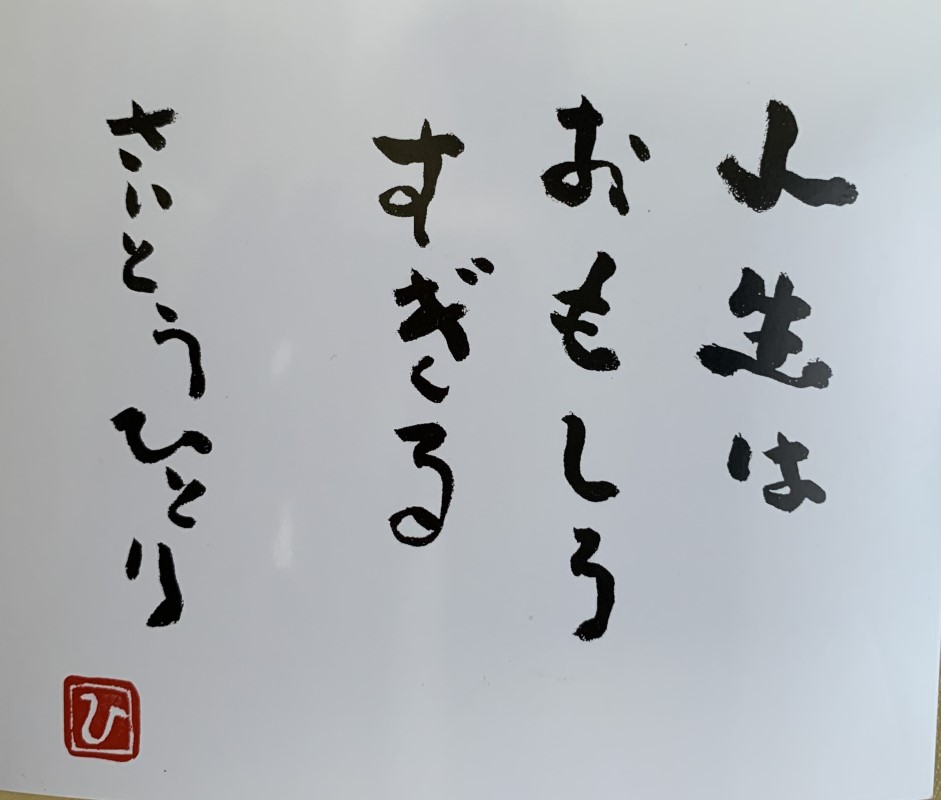 人生は
おもしろ
すぎる
さいとうひとり
ひ